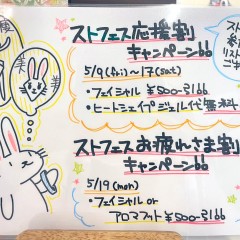 ストフェス応援割
キャンペーン
5/9(fri)〜17(sat)
・フェイシャル ¥500-引
・ヒートシェイプジェル代 無料
ストフェスお疲れさま割
キャンペーン
5/19(mon)
・フェイシャル or
アロマフット ¥500-引
スト